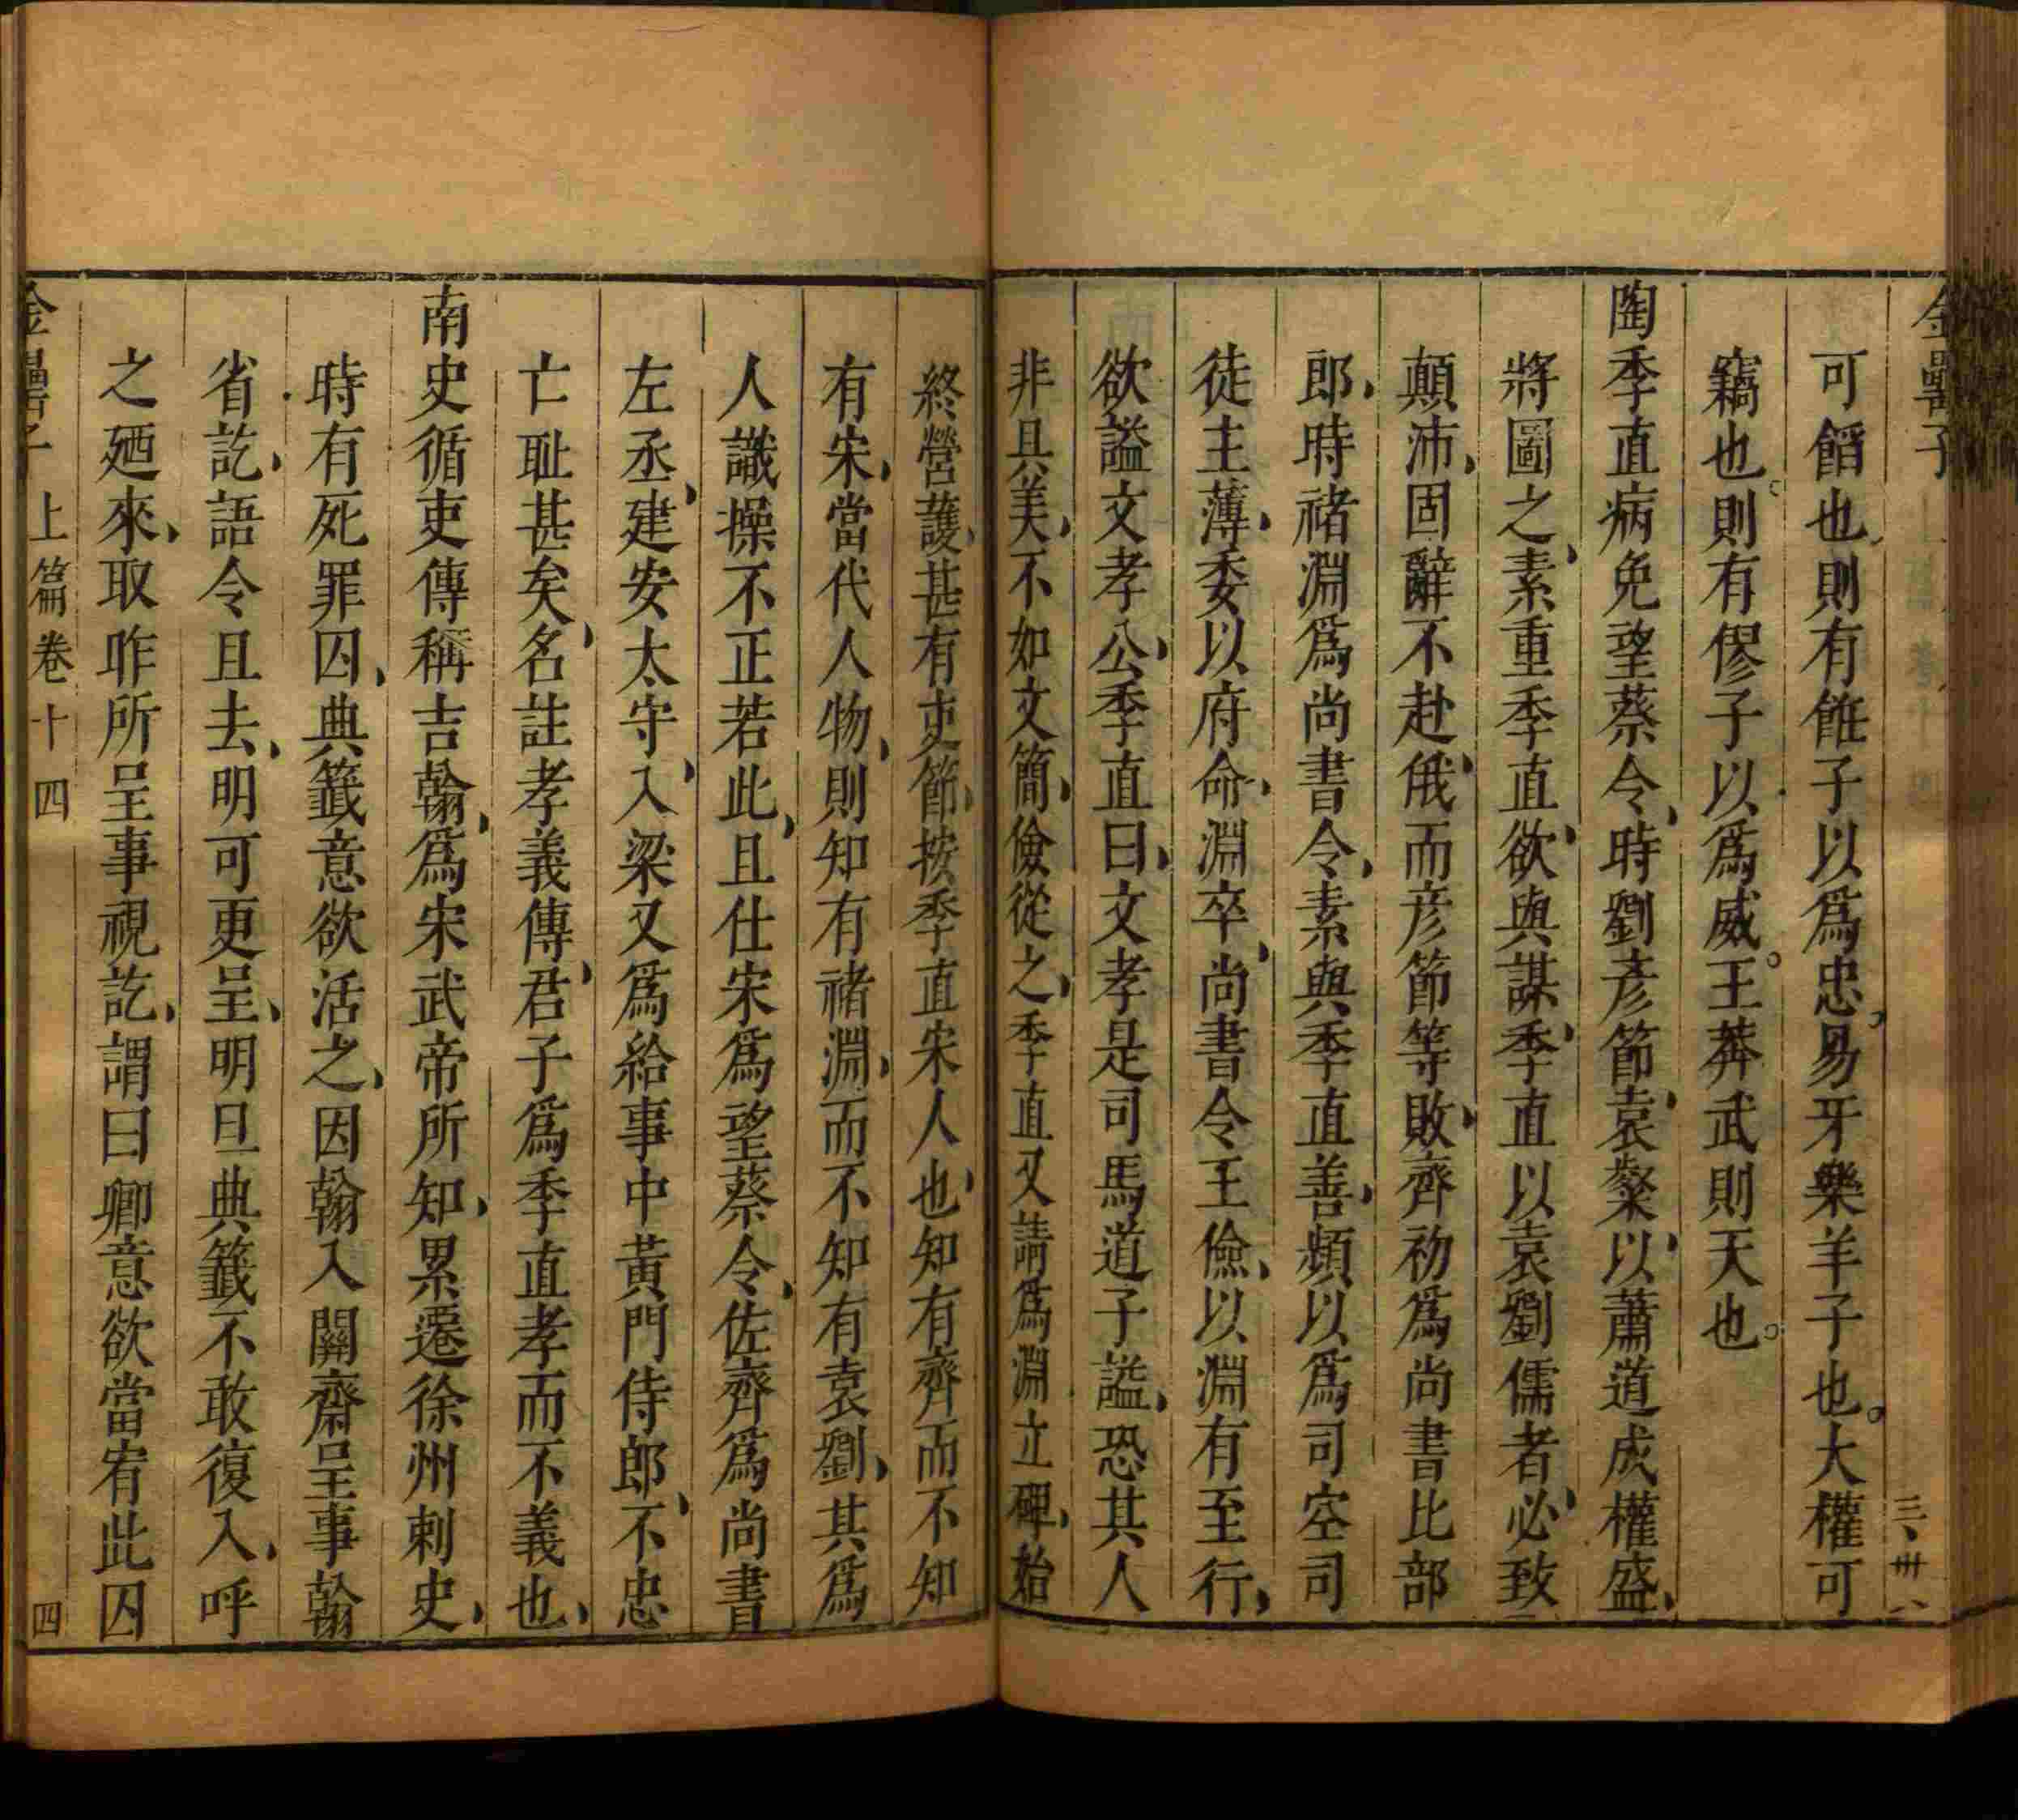 金罍子
三 卅八
可餡也則有餁子以爲忠易牙樂羊子也大權可
竊也則有僇子以爲威王莽武則天也
陶季直病免望蔡令時劉彥節袁粲以蕭道成權盛
將圖之素重季直欲與謀季直以袁劉儒者必致
顛沛固辭不赴俄而彦節等敗齊初爲尚書比部
郎時禇淵爲尚書令素與季直善頻以爲司空司
徒主薄委以府命淵卒尚書令王儉以淵有至行
欲謚文孝公季直曰文孝是司馬道子謚恐其人
非具美不如文簡儉從之季直又請爲淵立碑始
終營護甚有吏節按季直宋人也知有齊而不知
有宋當代人物則知有禇淵而不知有袁劉其爲
人識操不正若此且仕宋爲望蔡令佐齊爲尚書
左丞建安太守入梁又爲給事中黃門侍郎不忠
亡耻甚矣名註孝義傳君子爲季直孝而不義也
南史循吏傳稱吉翰爲宋武帝所知累遷徐州刺史
時有死罪囚典籤意欲活之因翰入關齋呈事翰
省訖語令且去明可更呈明旦典籤不敢復入呼
之廼來取昨所呈事視訖謂曰卿意欲當宥此囚
金罍子 上篇卷十四 四